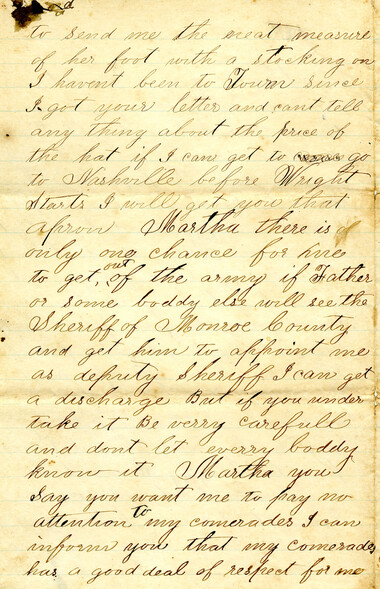 to send me the neat measure
of her foot with a stocking on
I havent been to Town since
I got your letter and cant tell
any thing about the price of
the hat if I can get to go
to Nashville before Wright
Starts I will get you that
apron Martha there is
only one chance for me
to get out of the army if Father
or some boddy else will see the
Sheriff of Monroe County
and get him to appoint me
as deputy Sheriff I can get
a discharge But if you under
take it Be verry carefull
and dont let everry boddy
know it Martha you
Say you want me to pay no
attention to my comerades I can
inform you that my comerades
has a good deal of respect for me